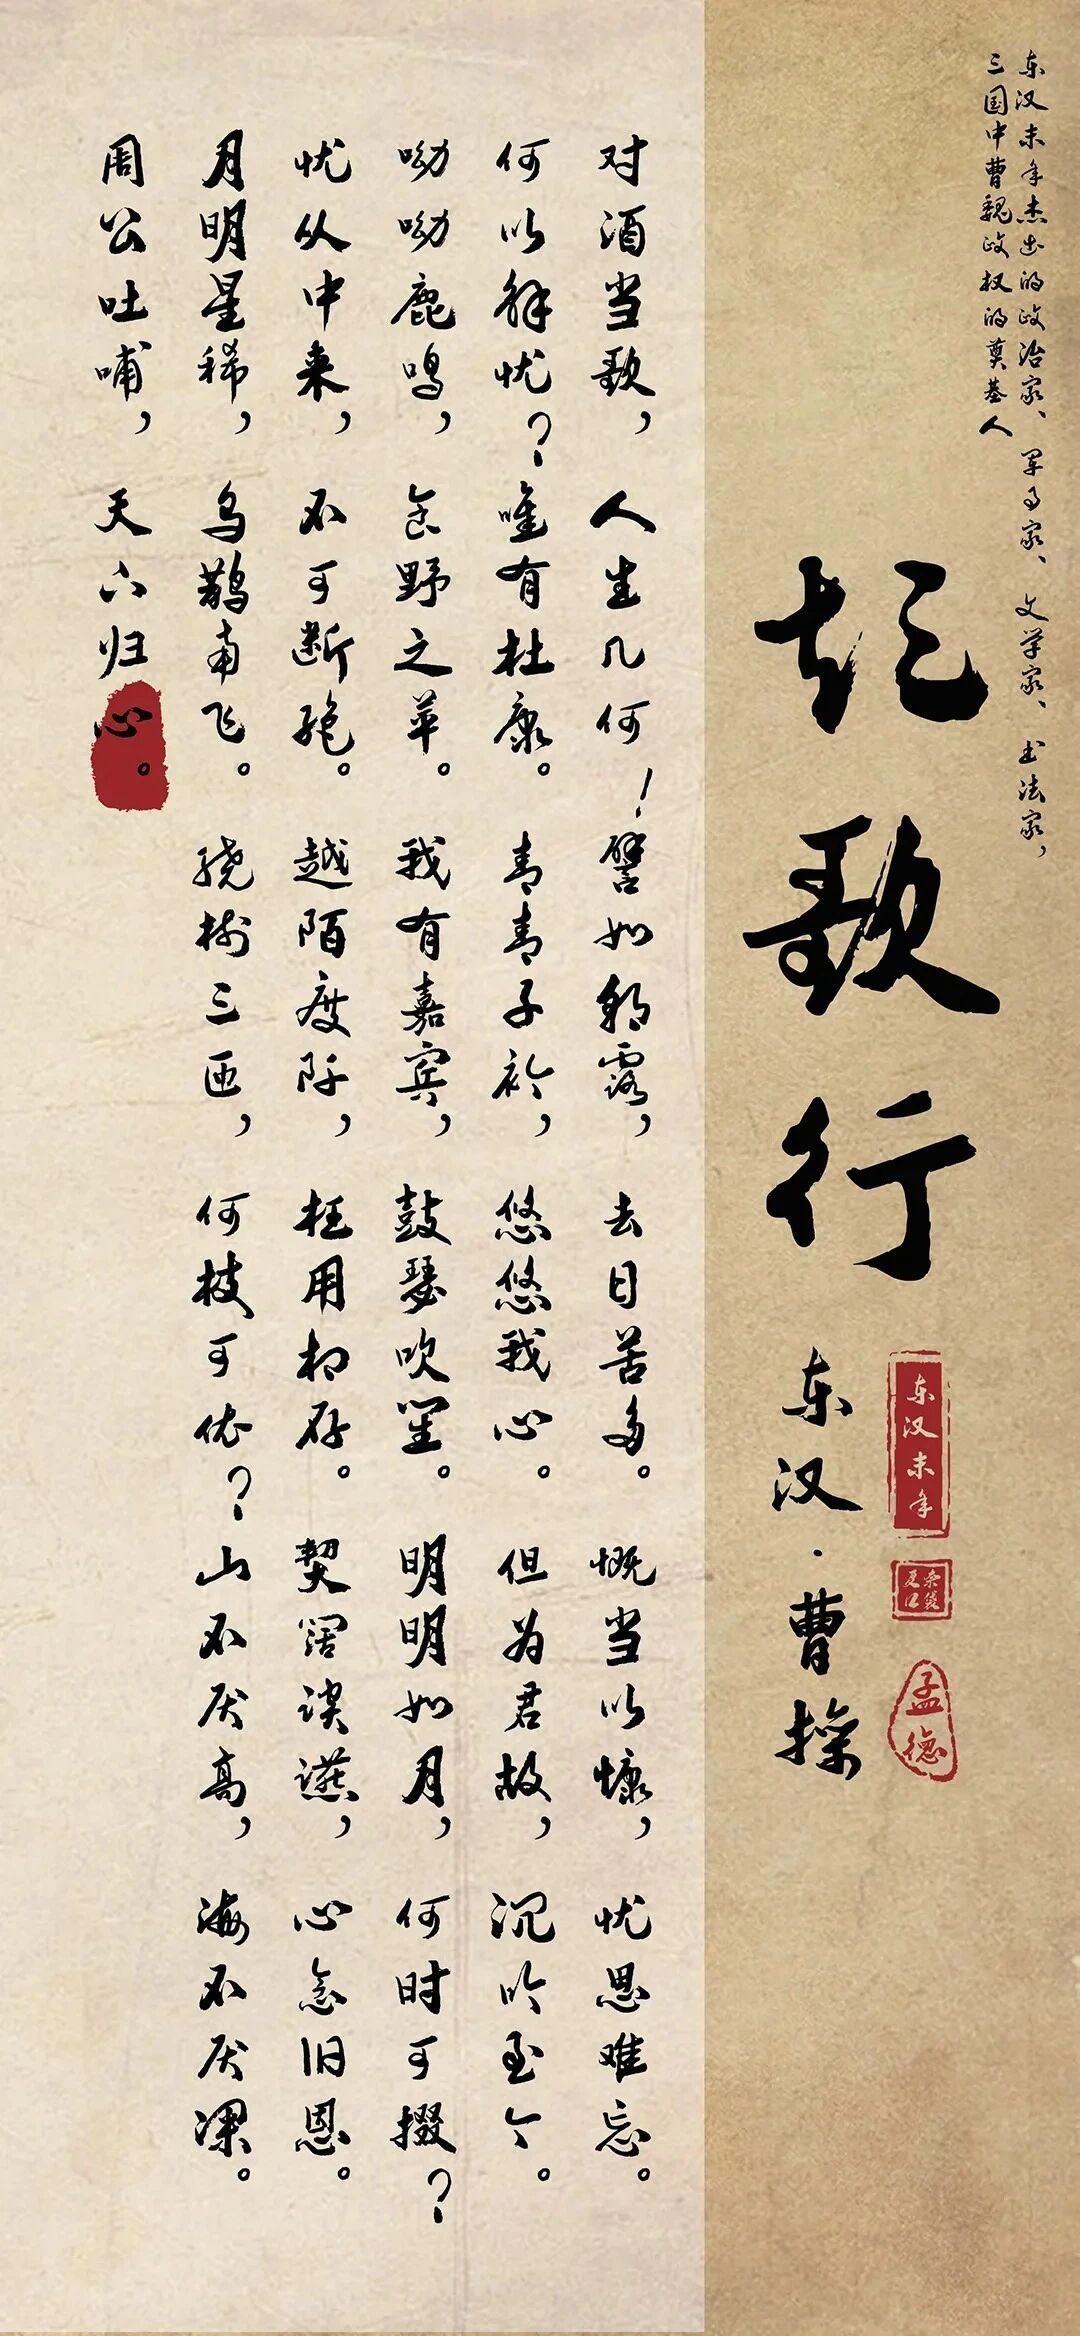 东汉末年杰出的政治家、军事家、文学家、书法家,
三国中曹魏政权的奠基人
短歌行
东汉末年
孟德
东汉·曹操
对酒当歌, 人生几何! 譬如朝露, 去日苦多。 慨当以慷, 忧思难忘。
何以解忧? 唯有杜康。 青青子衿, 悠悠我心。 但为君故, 沉吟至今。
呦呦鹿鸣, 食野之苹。 我有嘉宾, 鼓瑟吹笙。 明明如月, 何时可掇?
忧从中来, 不可断绝。 越陌度阡, 枉用相存。 契阔谈讌, 心念旧恩。
月明星稀, 乌鹊南飞。 绕树三匝, 何枝可依? 山不厌高, 海不厌深。
周公吐哺, 天下归心。